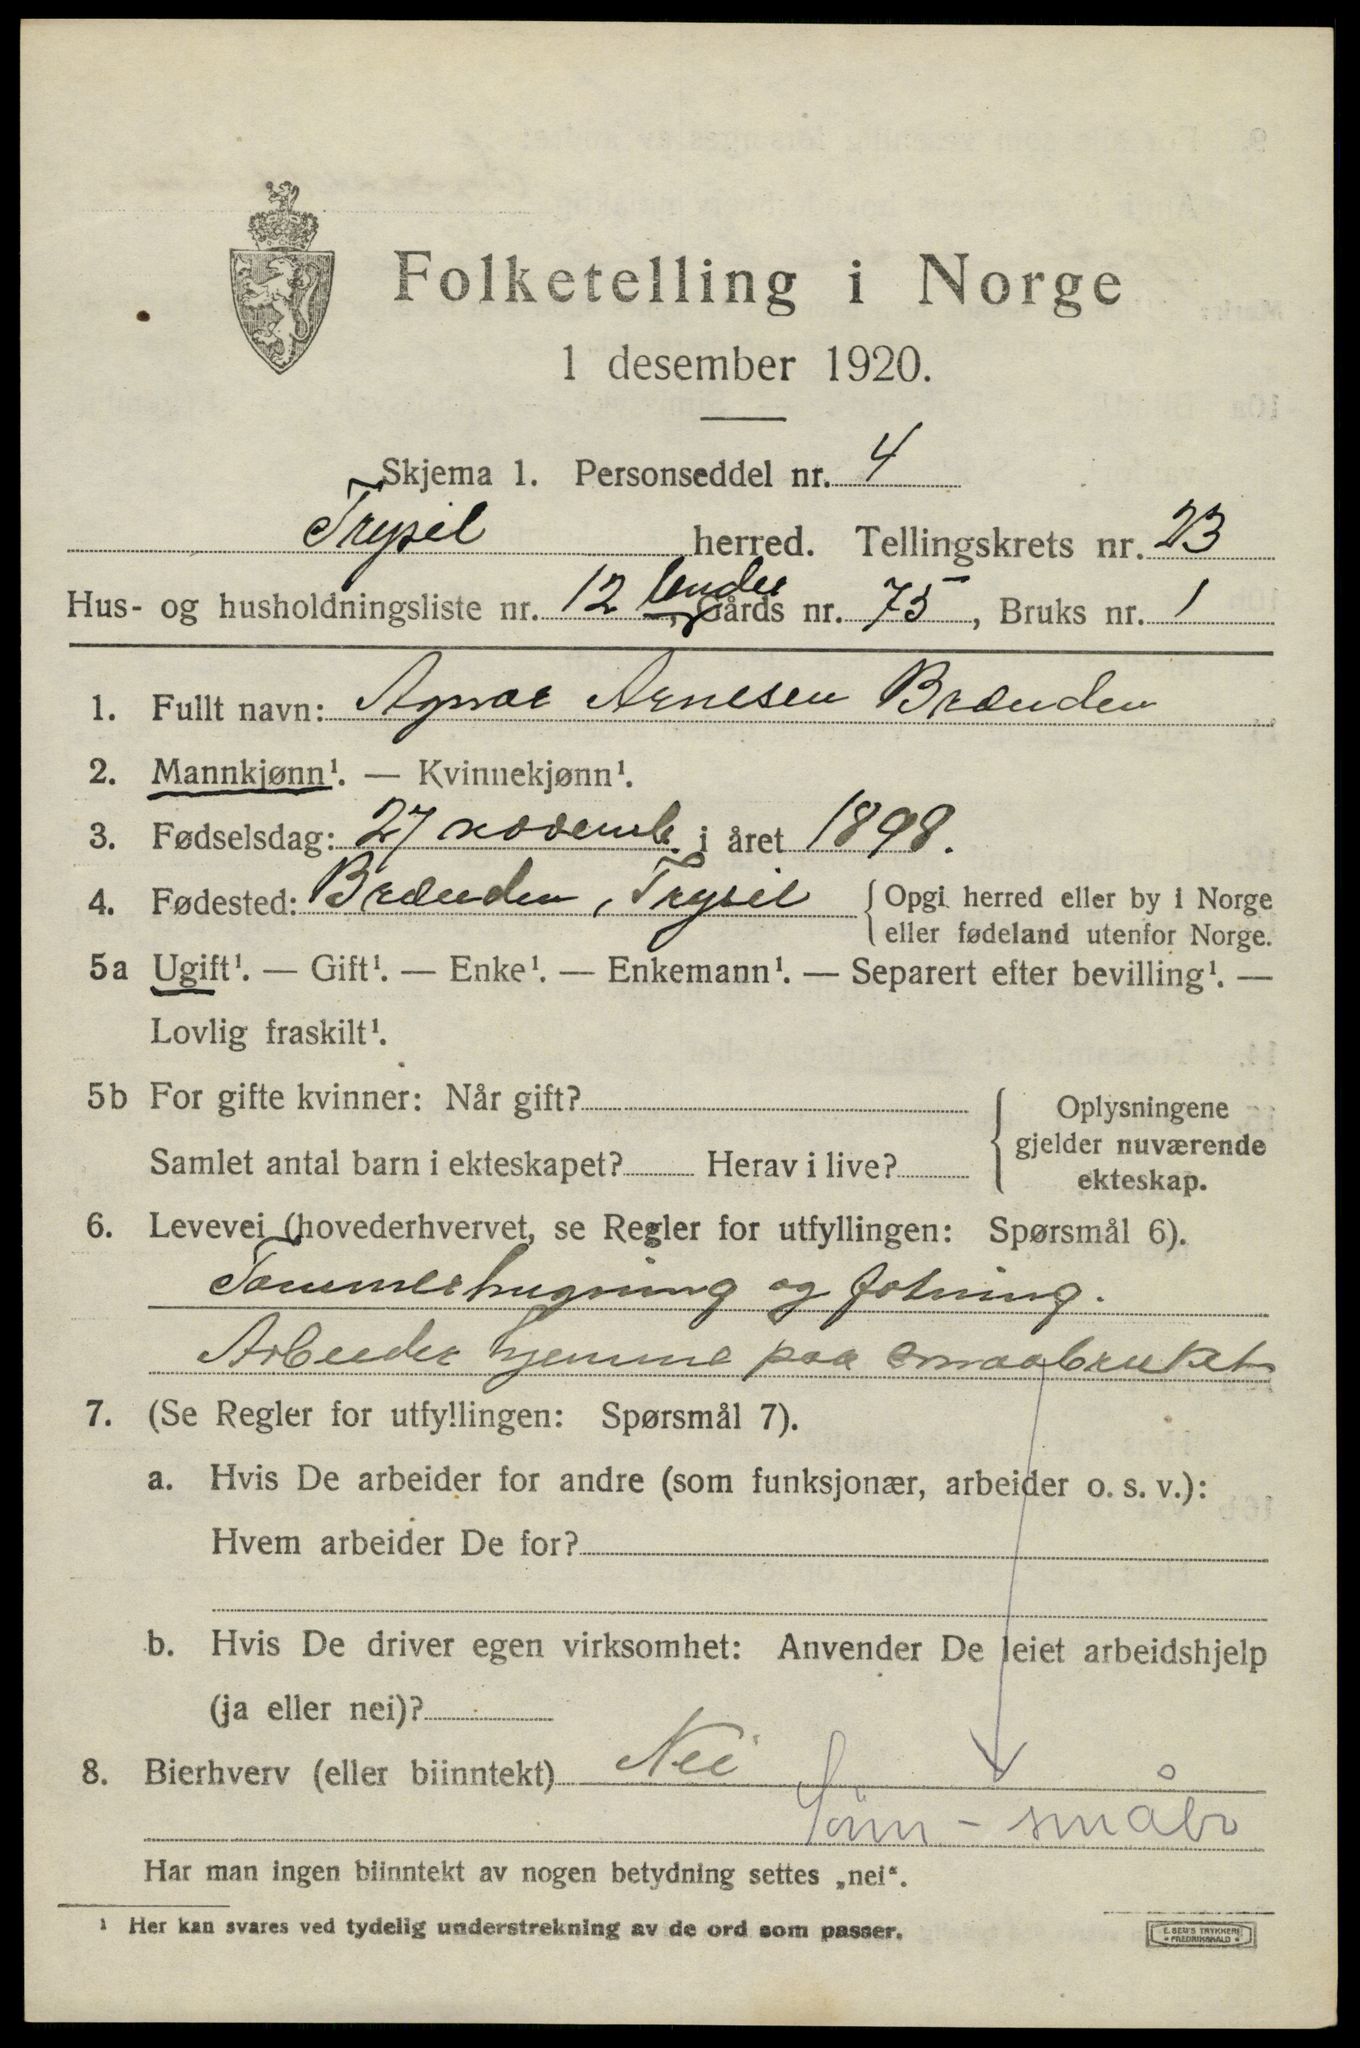 Folketelling i Norge
1 desember 1920.
Skjema 1. Personseddel nr. 4
Trysil herred. Tellingskrets nr. 23
Hus- og husholdningsliste nr. 12 , Gårds nr. 75, Bruks nr. 1
1. Fullt navn: Agnar Arnesen Brænden
2. Mannkjønn¹. — Kvinnekjønn¹.
3. Fødselsdag: 27 novemb. i året 1898.
4. Fødested: Brænden, Trysil { Opgi herred eller by i Norge
eller fødeland utenfor Norge.
5a Ugift¹. — Gift¹. — Enke¹. — Enkemann¹. — Separert efter bevilling¹. —
Lovlig fraskilt¹.
5b For gifte kvinner: Når gift?
Samlet antal barn i ekteskapet? Herav i live?
{ Oplysningene
gjelder nuværende
ekteskap.
6. Levevei (hovederhvervet, se Regler for utfyllingen: Spørsmål 6).
Tømmerhugning og fløtning.
Arbeider hjemme paa smaabruket
7. (Se Regler for utfyllingen: Spørsmål 7).
a. Hvis De arbeider for andre (som funksjonær, arbeider o. s. v.):
Hvem arbeider De for?
b. Hvis De driver egen virksomhet: Anvender De leiet arbeidshjelp
(ja eller nei)?
8. Bierhverv (eller biinntekt) Nei
Sønn - småbr
Har man ingen biinntekt av nogen betydning settes „nei“.
¹ Her kan svares ved tydelig understrekning av de ord som passer.
E. SEMS TRYKKERI
FREDRIKSHALD